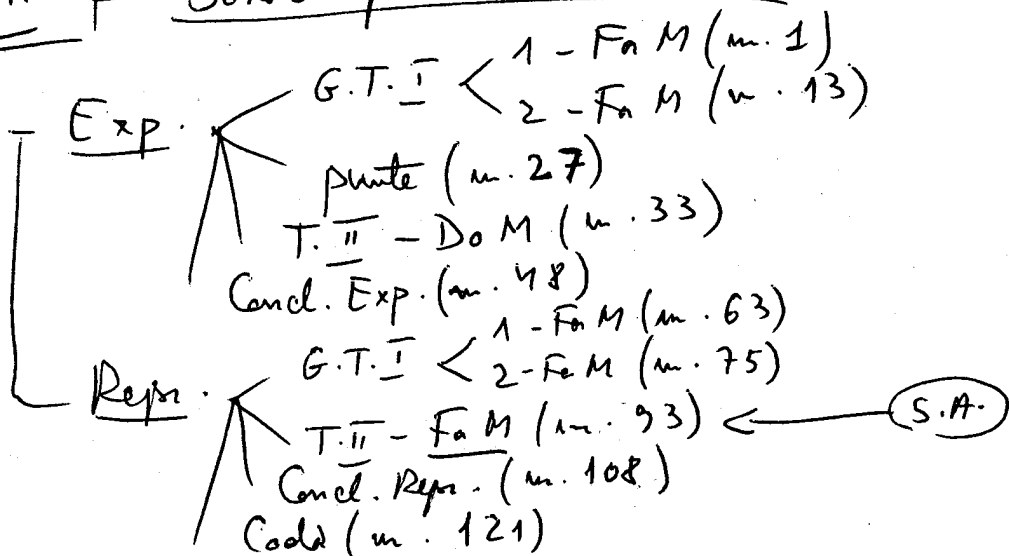 Exp. G.T.I < 1 - Fa M (m. 1)
2 - Fa M (m. 13)
punte (m. 27)
T.II - Do M (m. 33)
Concl. Exp. (m. 48)
Repr. G.T.I < 1 - Fa M (m. 63)
2 - Fa M (m. 75)
T.II - Fa M (m. 93) ← S.A.
Concl. Repr. (m. 108)
Coda (m. 121)